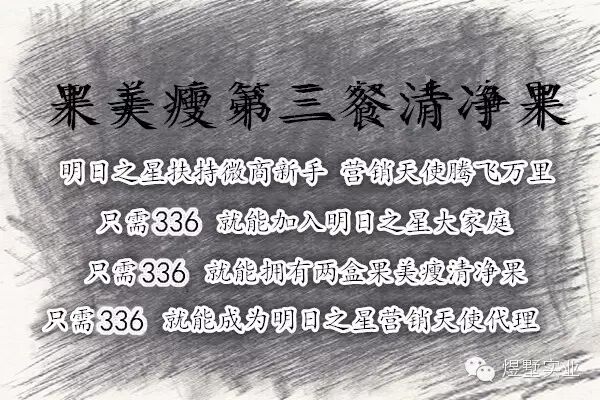 果美瘦第三餐清净果
明日之星扶持微商新手 营销天使腾飞万里
只需336 就能加入明日之星大家庭
只需336 就能拥有两盒果美瘦清净果
只需336 就能成为明日之星营销天使代理
煜墅实业